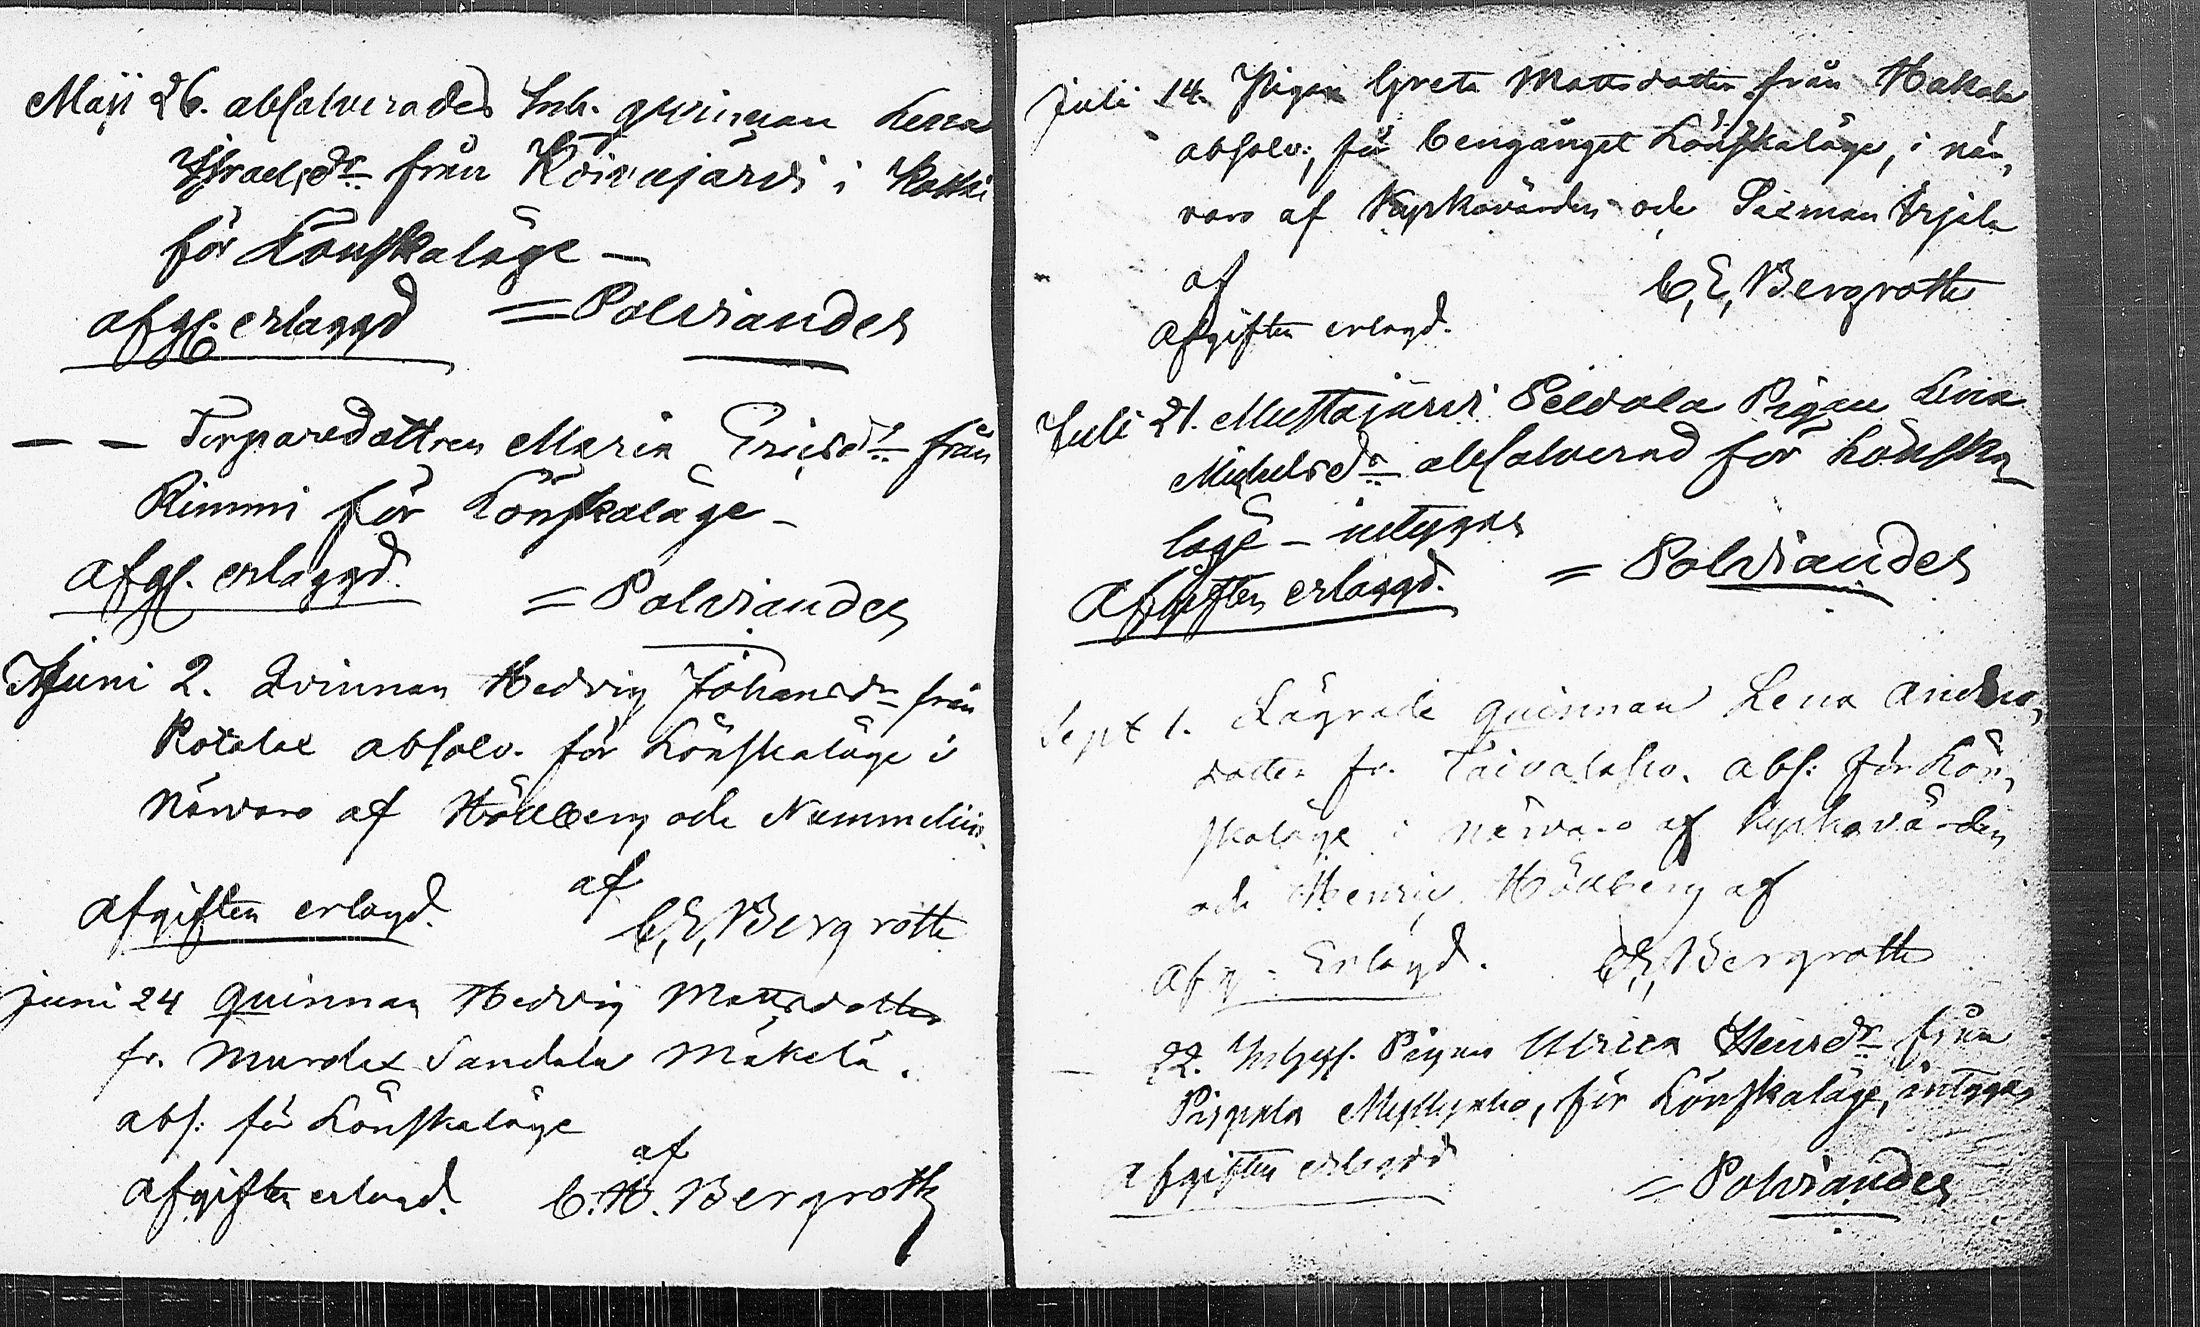 Maji 26. absolverades Inh. qvinnan Lena
Israelsdr från Koivujärvi i Kottki
för Lönskaläge –
afg. erlaggd = Polviander
– – Torparedottren Maria Ericsdr från
Rimmi för Lönskaläge –
afg. erlaggd. = Polviander
Juni 2. Qvinnan Hedvig Johansdr från
Rotalax absolv. för Lönskaläge i
närvaro af Hällberg och Nummelin.
af
afgiften erlagd. C.E. Bergroth
Juni 24 Quinnan Hedvig Mattsdotter
fr. Murdex Sandala Mäkelä.
abs: för Lönskaläge
af
afgiften erlagd. C.H. Bergroth
Juli 14. Pigan Greta Mattsdotter från Hakala
absolv:, för bengånget Lönskaläge, i när,
varo af Kyrkovärden och Sexman Erjala
af C,E, Bergroth
Afgiften erlagd.
Juli 21. Mustajärvi Peldola Pigan Lena
Michelsdr absolverad för Lönska
läge – intygar
Afgiften erlaggd. = Polviander
Sept 1. Lägrade quinnan Lena Anders,
dotter fr. Taivalsko. abs: för Lön,
skaläge i närvaro af Kyrkovärden
och Henric Hällberg af
Afg: Erlagd. C,E, Bergroth
– 22. Inhys. Pigan Ulrica Henrsdr från
Pispala Myllyaho, för Lönskaläge, intygar
afgiften erlaggd = Polviander